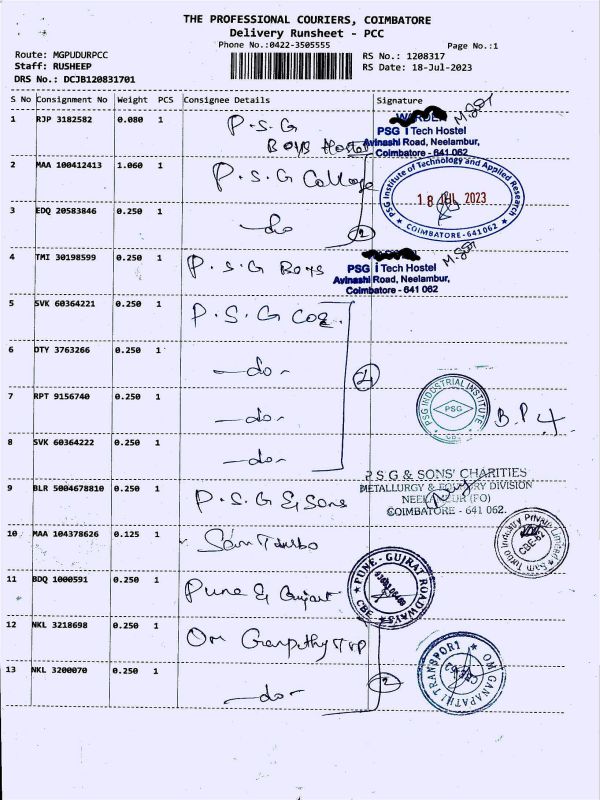 THE PROFESSIONAL COURIERS, COIMBATORE
Delivery Runsheet - PCC
Phone No.:0422-3505555
Page No.:1
Route: MGPUDURPCC
Staff: RUSHEEP
DRS No.: DCJB120831701
RS No.: 1208317
RS Date: 18-Jul-2023
S No Consignment No Weight PCS Consignee Details Signature
1 RJP 3182582 0.080 1 P.S.G
Boys Hostel
WARDEN
PSG iTech Hostel
Avinashi Road, Neelambur,
Coimbatore - 641 062
2 MAA 100412413 1.060 1 P.S.G College
PSG Institute of Technology and Applied Research
18 JUL 2023
★ COIMBATORE-641062 ★
3 EDQ 20583846 0.250 1 —do
2
4 TMI 30198599 0.250 1 P.S.G Boys
PSG iTech Hostel
Avinashi Road, Neelambur,
Coimbatore - 641 062
5 SVK 60364221 0.250 1 P.S.G
6 DTY 3763266 0.250 1 —do-
4
7 RPT 9156740 0.250 1 —do-
PSG INDUSTRIAL INSTITUTE
PSG
8 SVK 60364222 0.250 1 —do-
9 BLR 5004678810 0.250 1 P.S.G & Sons
P S G & SONS' CHARITIES
METALLURGY & FOUNDRY DIVISION
NEELAMBUR (PO)
COIMBATORE - 641 062.
10 MAA 104378626 0.125 1 Sam Turbo
Sam Turbo Industry Private Limited
11 BDQ 1000591 0.250 1 Pune & Gujarat
PUNE - GUJRAT ROADWAYS
CBE
12 NKL 3218698 0.250 1 Om Ganpathy TVP
13 NKL 3200070 0.250 1 —do-
2
OM GANAPATHI TRANSPORT